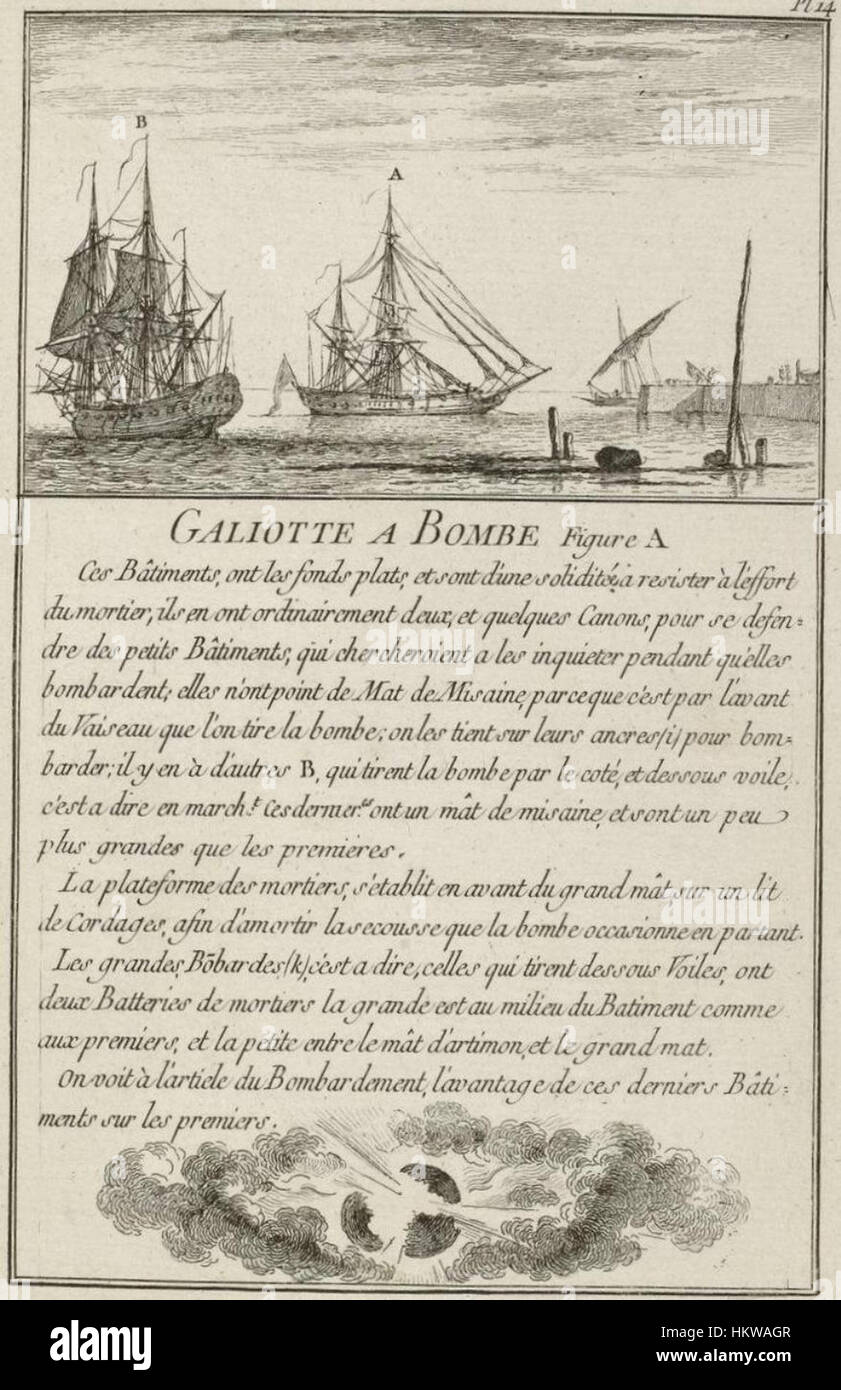 Pl 14
B
A
GALIOTTE A BOMBE Figure A
Ces Bâtiments, ont les fonds plats, et sont d'une solidité, à resister à l'éffort
du mortier, ils en ont ordinairement deux, et quelques Canons, pour se defen=
dre des petits Bâtiments, qui chercheroient a les inquieter pendant qu'elles
bombardent; elles n'ont point de Mat de Misaine, parceque c'est par l'avant
du Vaiseau que l'on tire la bombe; on les tient sur leurs ancres (i) pour bom=
barder; il y en à d'autres B, qui tirent la bombe par le coté, et dessous voile,
c'est a dire en march.t Ces dernier.es ont un mât de misaine, et sont un peu
plus grandes que les premières.
La plateforme des mortiers, s'établit en avant du grand mât sur un lit
de Cordages, afin d'amortir la secousse que la bombe occasionne en partant.
Les grandes, Bōbardes (k), c'est a dire, celles qui tirent dessous Voiles, ont
deux Batteries de mortiers la grande est au milieu du Batiment comme
aux premiers, et la petite entre le mât d'artimon, et le grand mat.
On voit à l'article du Bombardement, l'avantage de ces derniers Bâti=
ments sur les premiers.
alamy
Image ID: HKWAGR
www.alamy.com